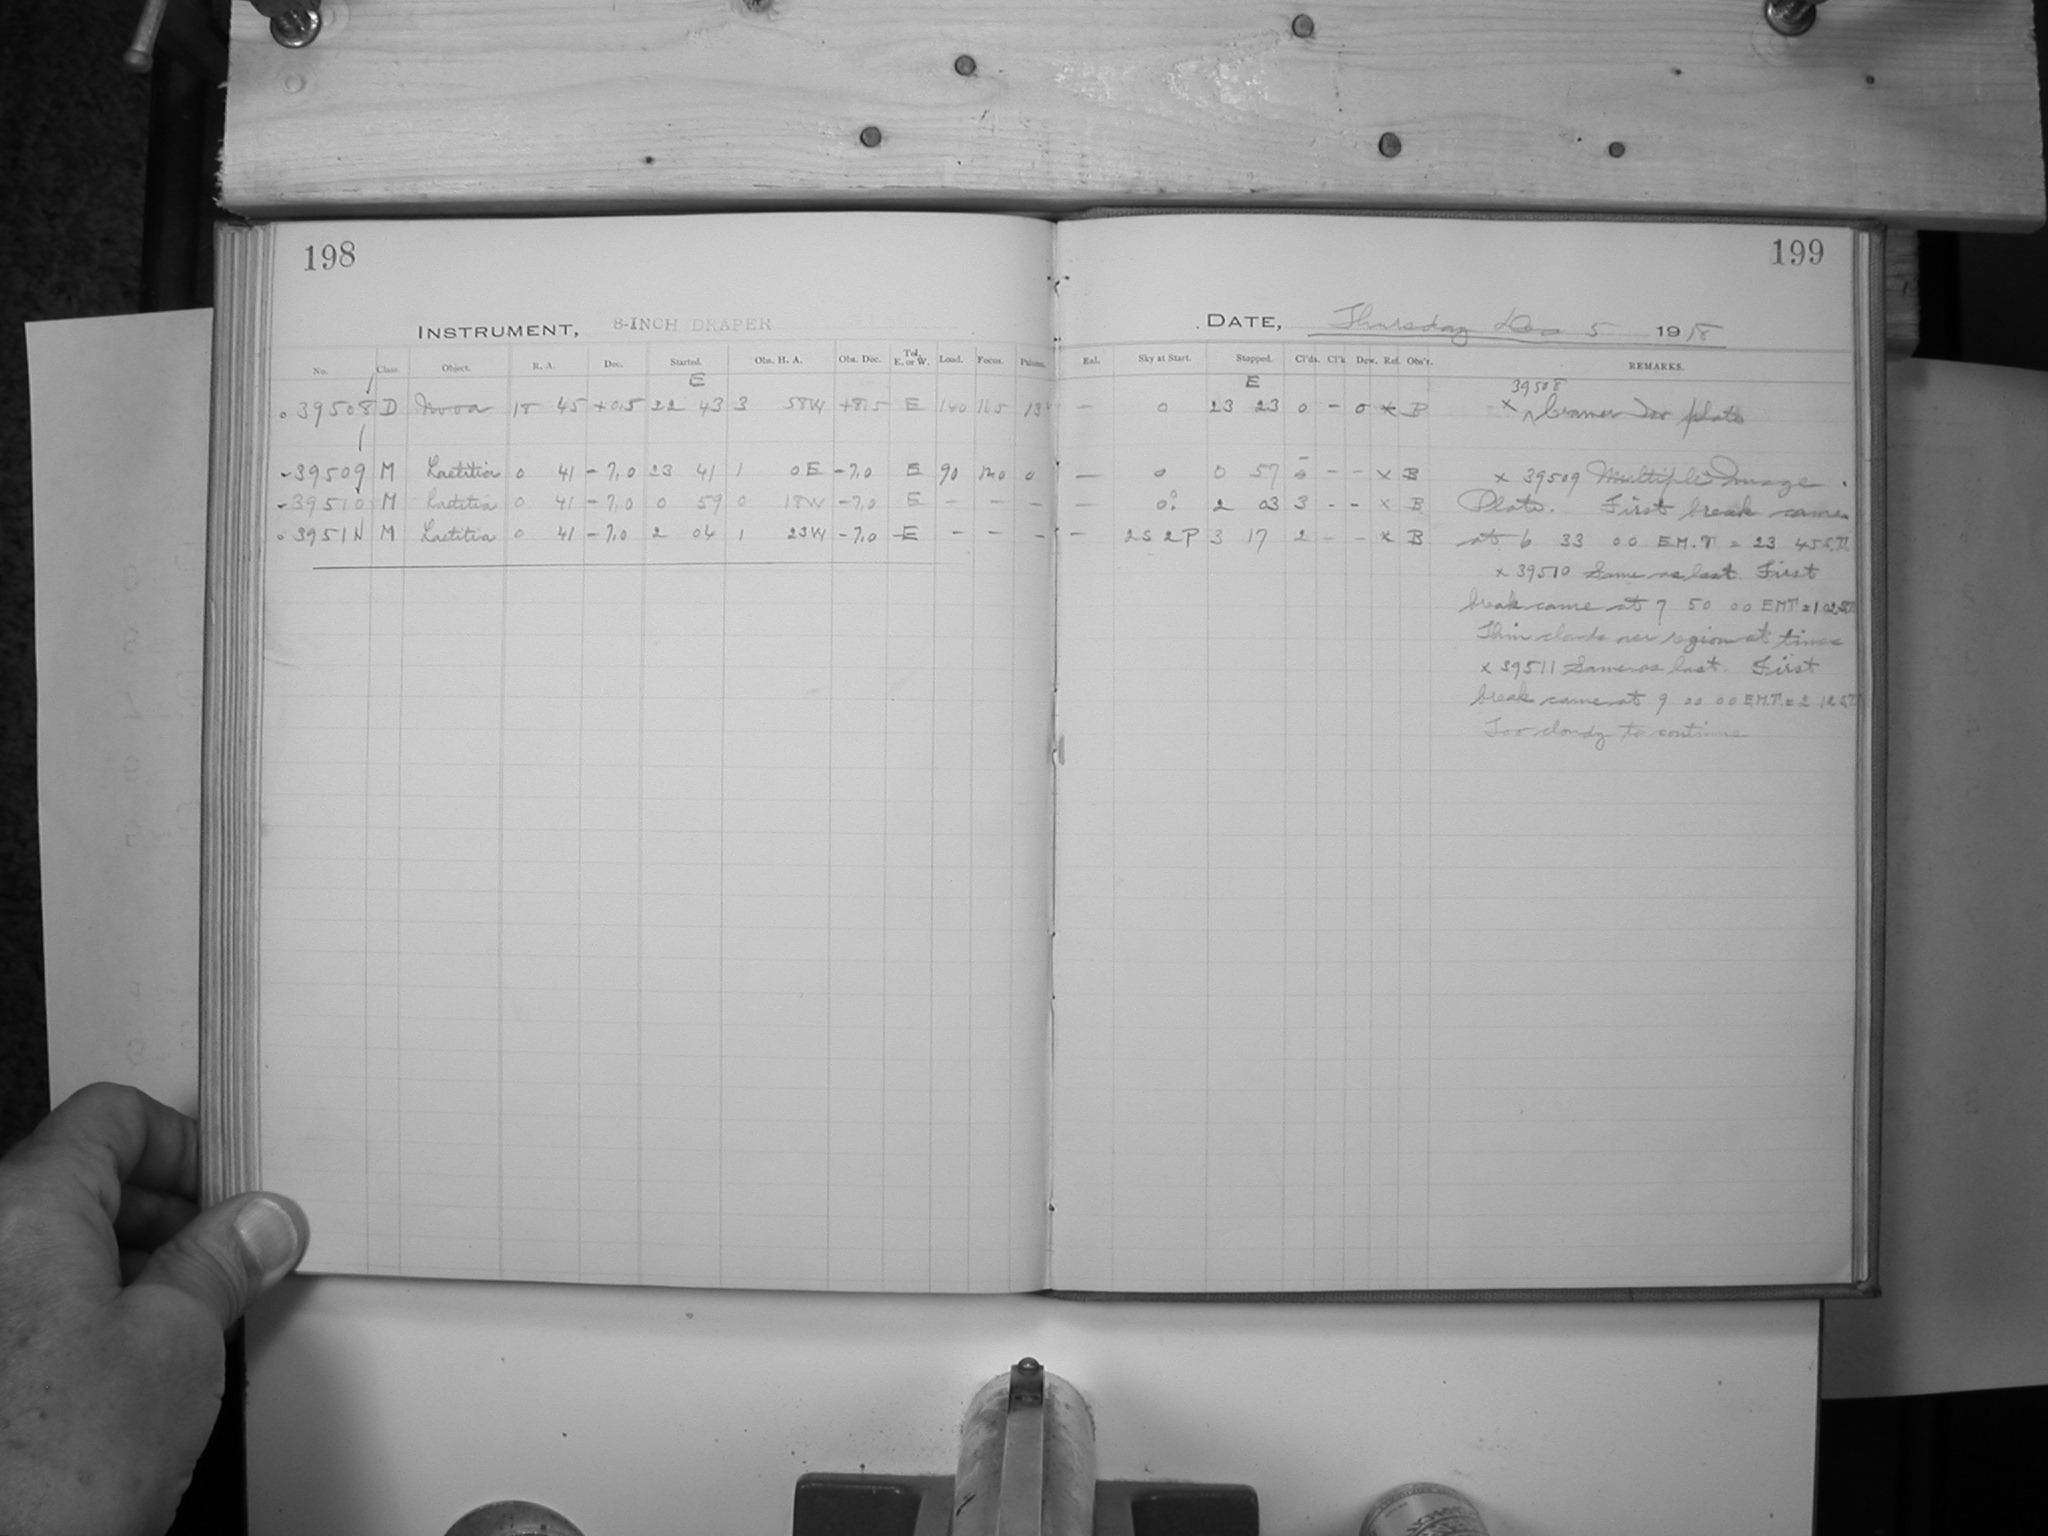 198
199
INSTRUMENT, 8-INCH DRAPER
DATE, Thursday Dec 5 1918
No. Class. Object. R. A. Dec. Started. Obs. H. A. Obs. Dec. Tel. E. or W. Load. Focus. Eal. Sky at Start. Stopped. Cl'ds. Cl'k Dew. Ref. Obs'r. REMARKS.
E E 39508
39508 D Nova 18 45 +0.5 22 43 3 58W +8.5 E 140 11.5 — 0 23 23 0 - 0 x B x Cramer Iso plate
39509 M Laetitia 0 41 -7.0 23 41 1 0E -7.0 E 90 12.0 0 — 0 0 57 - - x B x 39509 Multiple Image
39510 M Laetitia 0 41 -7.0 0 59 0 18W -7.0 E - - - — 0 2 03 3 - - x B Plate. First break came
39511 M Laetitia 0 41 -7.0 2 04 1 23W -7.0 E - - - — 2S 2P 3 17 2 - - x B at 6 33 00 E.M.T = 23 45 S.T.
x 39510 Same as last. First
break came at 7 50 00 EMT = 1 02 ST
Thin clouds over region at times
x 39511 Same as last. First
break came at 9 00 00 E.M.T. = 2 12 S.T.
Too cloudy to continue